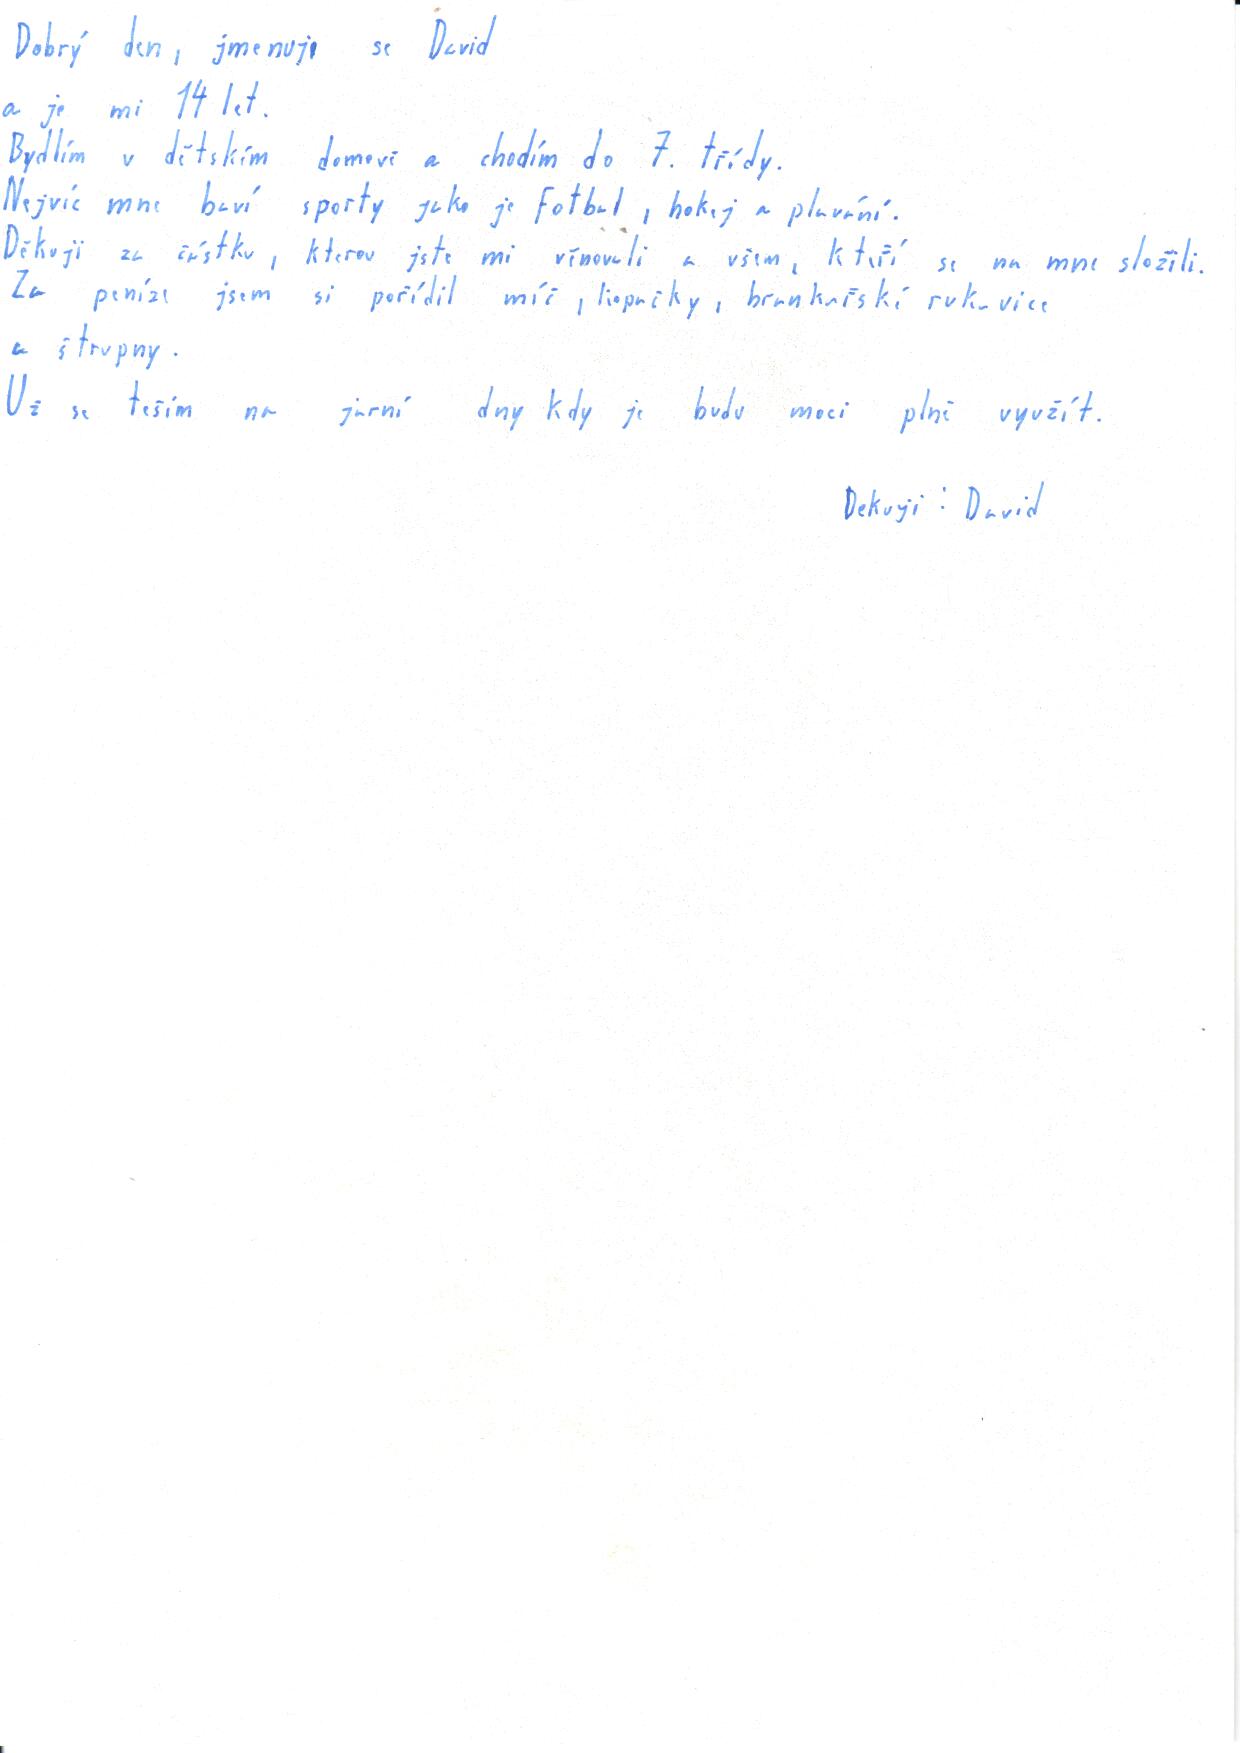 Dobrý den, jmenuji se David
a je mi 14 let.
Bydlím v dětském domově a chodím do 7. třídy.
Nejvíc mne baví sporty jako je fotbal, hokej a plavání.
Děkuji za částku, kterou jste mi věnovali a všem, kteří se na mne složili.
Za peníze jsem si pořídil míč, kopačky, brankařské rukavice
a štrupny.
Už se teším na jarní dny kdy je budu moci plně využít.
Dekuji: David